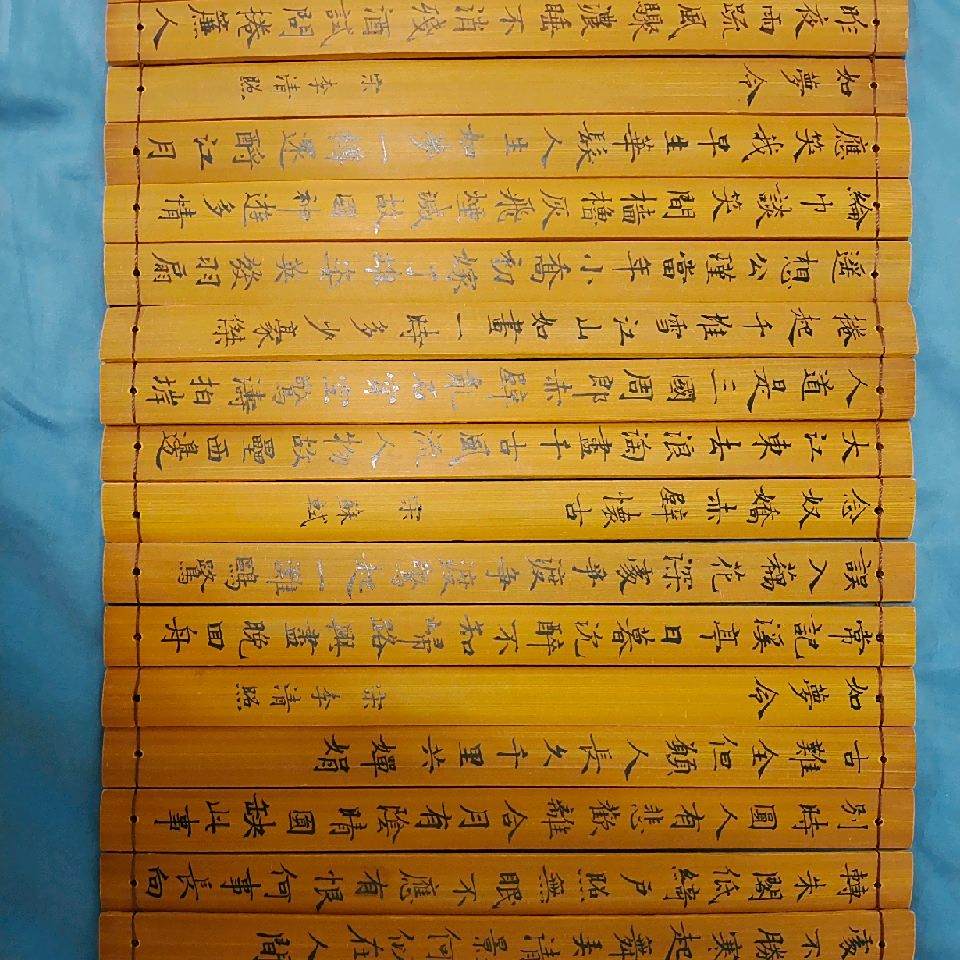 處不勝寒起舞弄清影何似在人間
轉朱閣低綺戶照無眠不應有恨何事長向
別時圓人有悲歡離合月有陰晴圓缺此事
古難全但願人長久千里共嬋娟
如夢令 宋 李清照
常記溪亭日暮沈醉不知歸路興盡晚回舟
誤入藕花深處爭渡爭渡驚起一灘鷗鷺
念奴嬌赤壁懷古 宋 蘇軾
大江東去浪淘盡千古風流人物故壘西邊
人道是三國周郎赤壁亂石穿空驚濤拍岸
捲起千堆雪江山如畫一時多少豪傑
遙想公瑾當年小喬初嫁了雄姿英發羽扇
綸巾談笑間檣櫓灰飛煙滅故國神遊多情
應笑我早生華髮人生如夢一樽還酹江月
如夢令 宋 李清照
昨夜雨疏風驟濃睡不消殘酒試問捲簾人